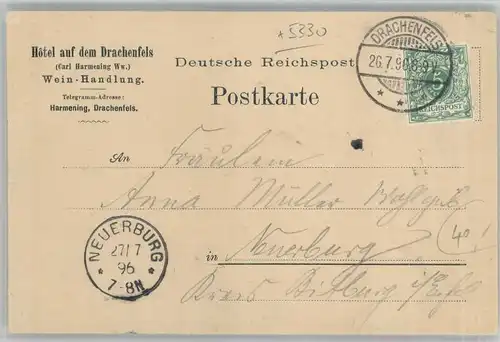 *5330
Hôtel auf dem Drachenfels
(Carl Harmening Ww.)
Wein-Handlung.
Telegramm-Adresse:
Harmening, Drachenfels.
Deutsche Reichspost
Postkarte
DRACHENFELS
26.7.96
5
REICHSPOST
An
Fräulein
Anna Müller
in Neuerburg
Kreis Bitburg i/Eifel
(40)
NEUERBURG
27/7
96
7-8N